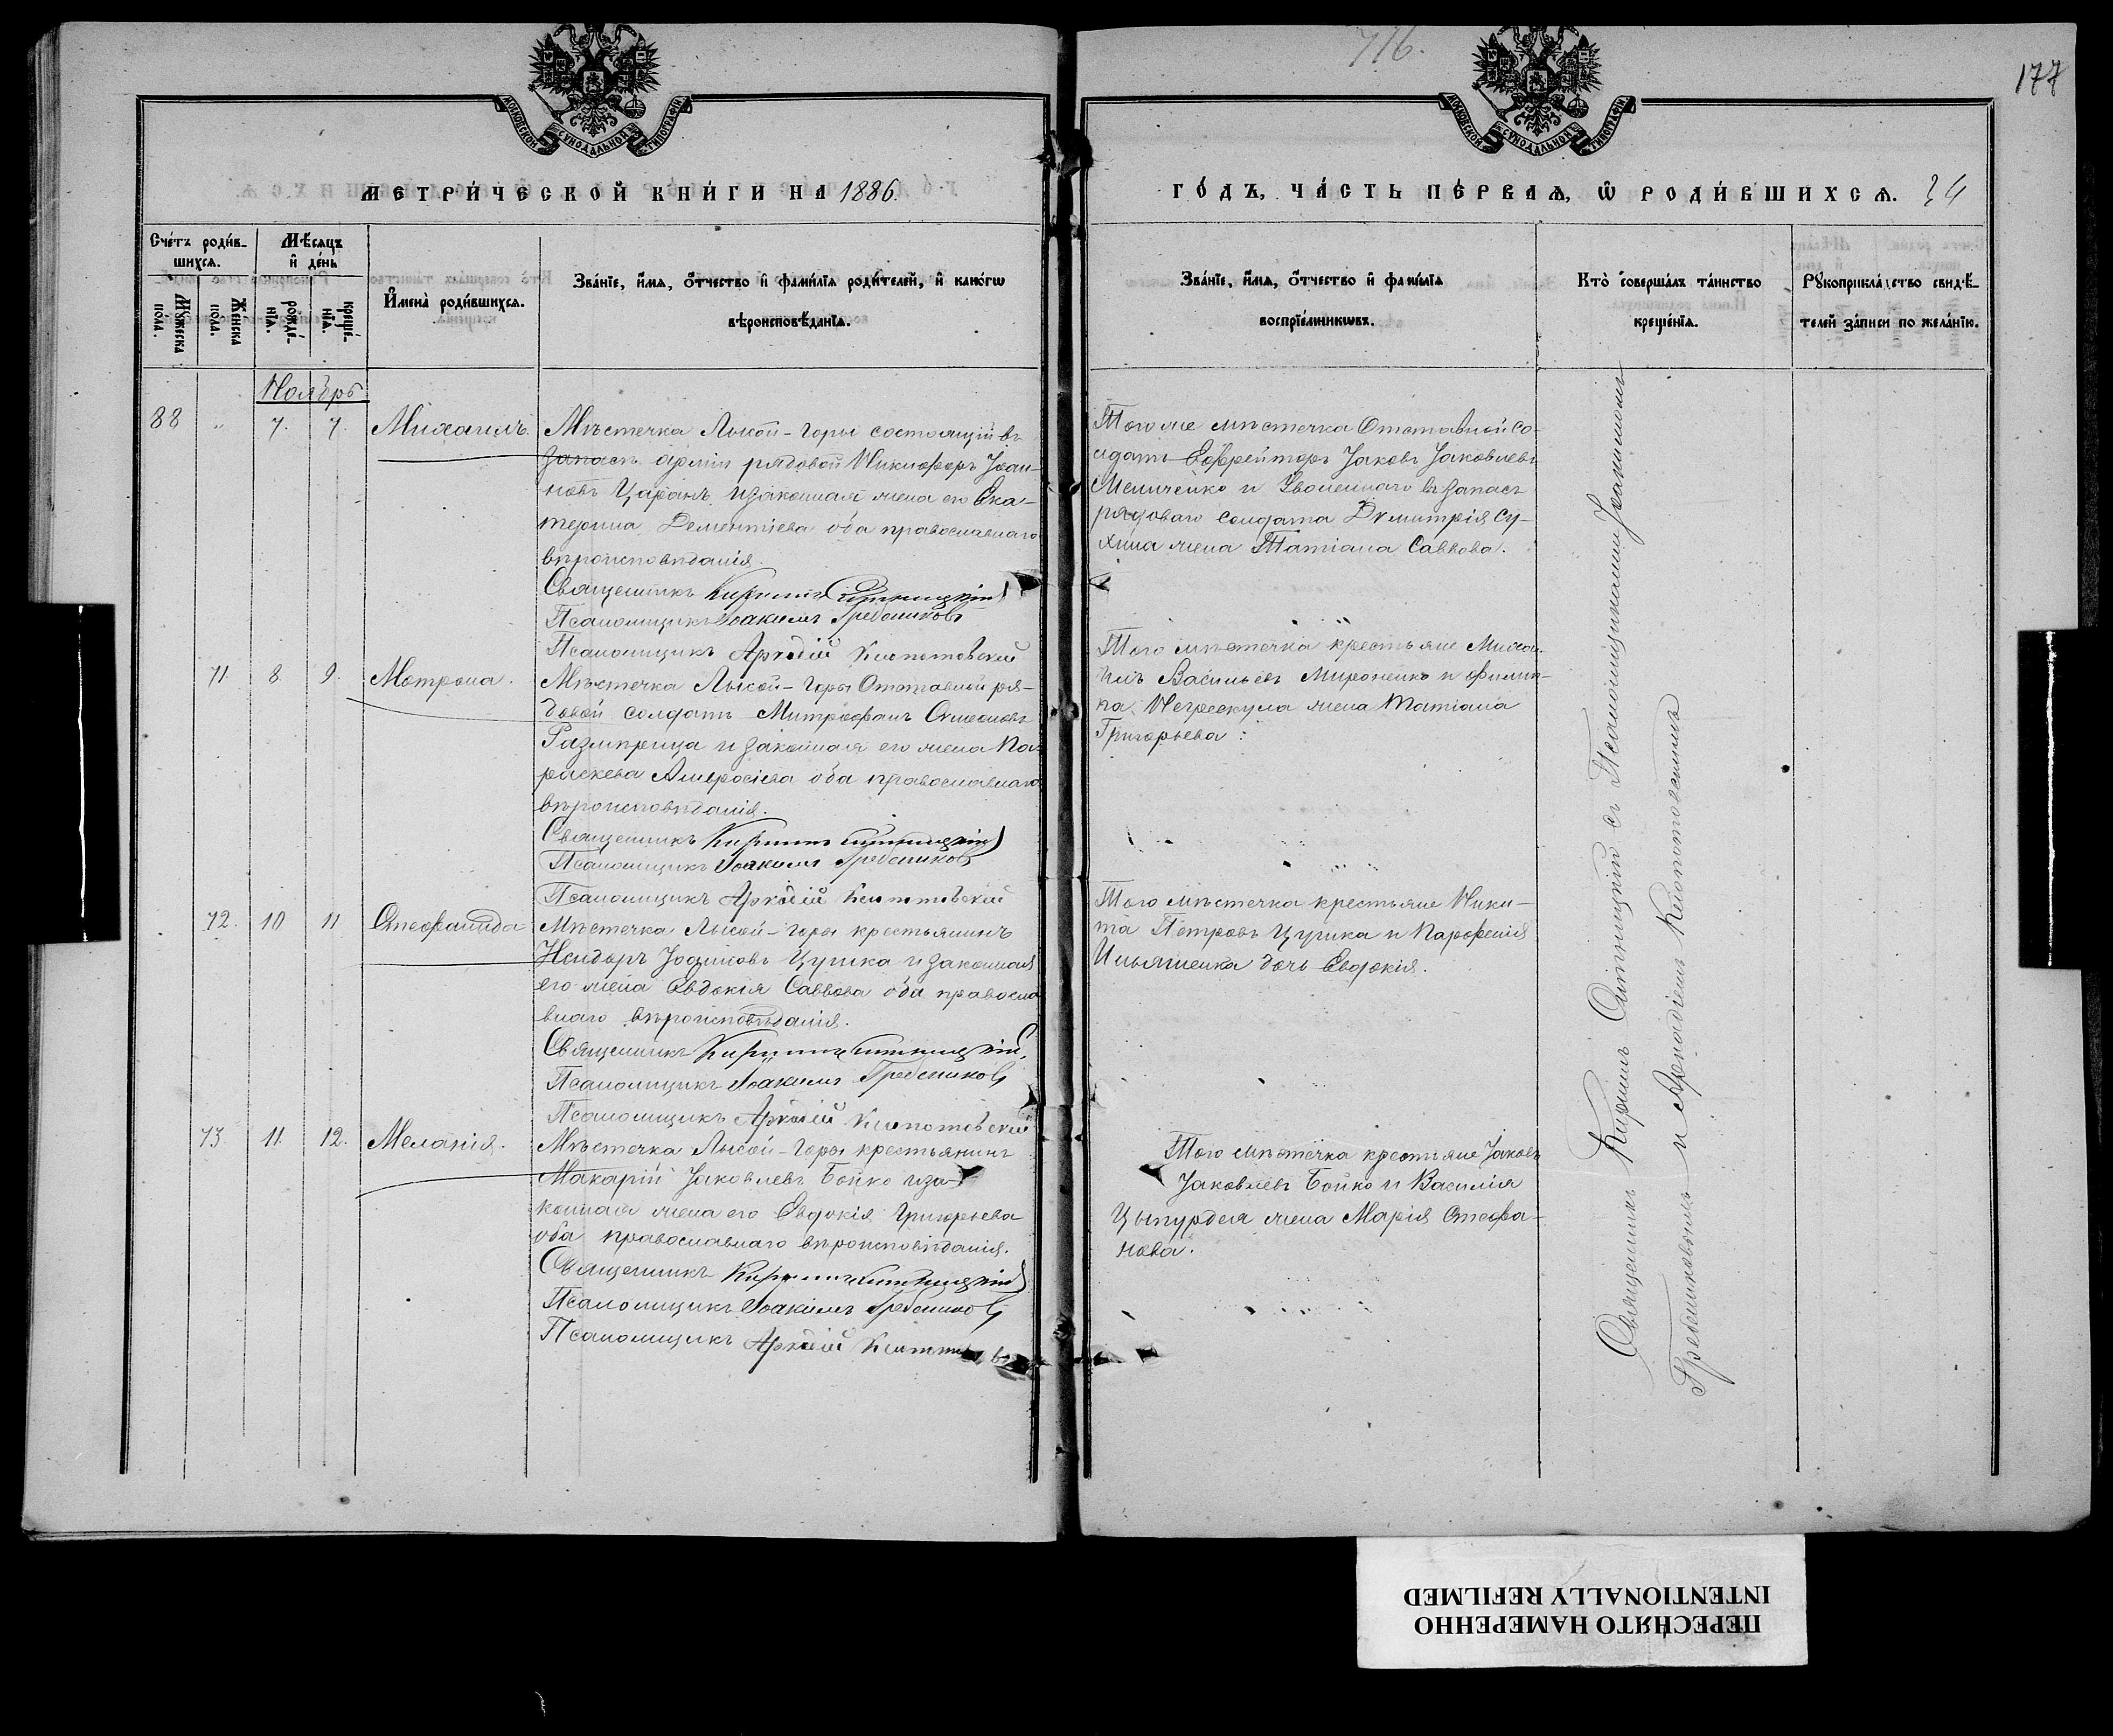 716.
177
МОСКОВСКОЙ СУНОДАЛЬНОЙ ТИПОГРАФІИ
МОСКОВСКОЙ СУНОДАЛЬНОЙ ТИПОГРАФІИ
МЕТРИ́ЧЕСКОЙ КНИ́ГИ НА 1886.
ГО́ДЪ, ЧА́СТЬ ПЕ́РВАЯ, Ѡ РОДИ́ВШИХСЯ. 34
Сче́тъ роди́в-
шихся.
Мѣ́сяцъ
и де́нь
Мужеска пола.
Женска пола.
рожде́-
нїя.
креще́-
нїя.
Имена̀ роди́вшихся.
Зва́нїе, и́мя, о́тчество и фами́лїя роди́телей, и како́гѡ
вѣроисповѣ́данїя.
Зва́нїе, и́мя, о́тчество и фами́лїя
воспрїе́мникѡвъ.
Кто̀ соверша́лъ та́инство
креще́нїя.
Рꙋкоприкла́дство свидѣ́-
телей за́писи по жела́нїю.
Ноябрь
88 „ 7. 7. Михаилъ.
Мѣстечка Лысой-Горы состоящій въ
запасѣ арміи рядовой Никифоръ Іоан-
новъ Царанъ и законная жена его Ека-
терина Дементіева оба православнаго
вѣроисповѣданія.
Священникъ Кириллъ Ситницкій
Псаломщикъ Іоакимъ Гребенниковъ
Псаломщикъ Аркадій Клопотовскій
Того же мѣстечка Отставной со-
лдатъ Ефрейторъ Іаковъ Іаковлевъ
Мельниченко и Уволеннаго въ запасъ
рядоваго солдата Димитрія Су-
хина жена Татіана Саввова.
71. 8. 9. Матрона.
Мѣстечка Лысой-Горы Отставный ря-
довой солдатъ Митрофанъ Симеоновъ
и законная его жена Па-
раскева Амвросіева оба православнаго
вѣроисповѣданія.
Священникъ Кириллъ Ситницкій
Псаломщикъ Іоакимъ Гребенниковъ
Псаломщикъ Аркадій Клопотовскій
Того мѣстечка крестьяне Миха-
илъ Васильевъ Мироненко и Филип-
па Негрескула жена Татіана
Григорьева:
72. 10 11 Стефанида
Мѣстечка Лысой-Горы крестьянинъ
Исидоръ Цурка и законная
его жена Евдокія Саввова оба правосла-
внаго вѣроисповѣданія.
Священникъ Кириллъ Ситницкій
Псаломщикъ Іоакимъ Гребенниковъ
Псаломщикъ Аркадій Клопотовскій
Того мѣстечка крестьяне Ники-
та Петровъ Цурка и Парфенія
Ильяшенка дочь Евдокія.
73. 11. 12. Меланія.
Мѣстечка Лысой-Горы крестьянинъ
Макарій Іаковлевъ Бойко и за-
конная жена его Евдокія Григорьева
оба православнаго вѣроисповѣданія.
Священникъ Кириллъ Ситницкій
Псаломщикъ Іоакимъ Гребенниковъ
Псаломщикъ Аркадій
Того мѣстечка крестьяне Іаковъ
Іаковлевъ Бойко и Василія
Цыпурдея жена Марія Стефа-
нова.
Священникъ Кириллъ Ситницкій съ Псаломщиками Іоакимомъ
Гребенниковымъ и Аркадіемъ Клопотовскимъ
ПЕРЕСНЯТО НАМЕРЕННО
INTENTIONALLY REFILMED